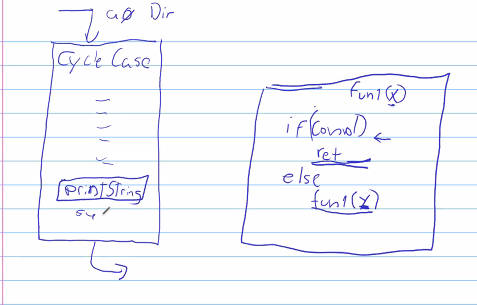 a0 Dir
Cycle Case
printString
fun1(x)
if(cond)
ret
else
fun1(x)